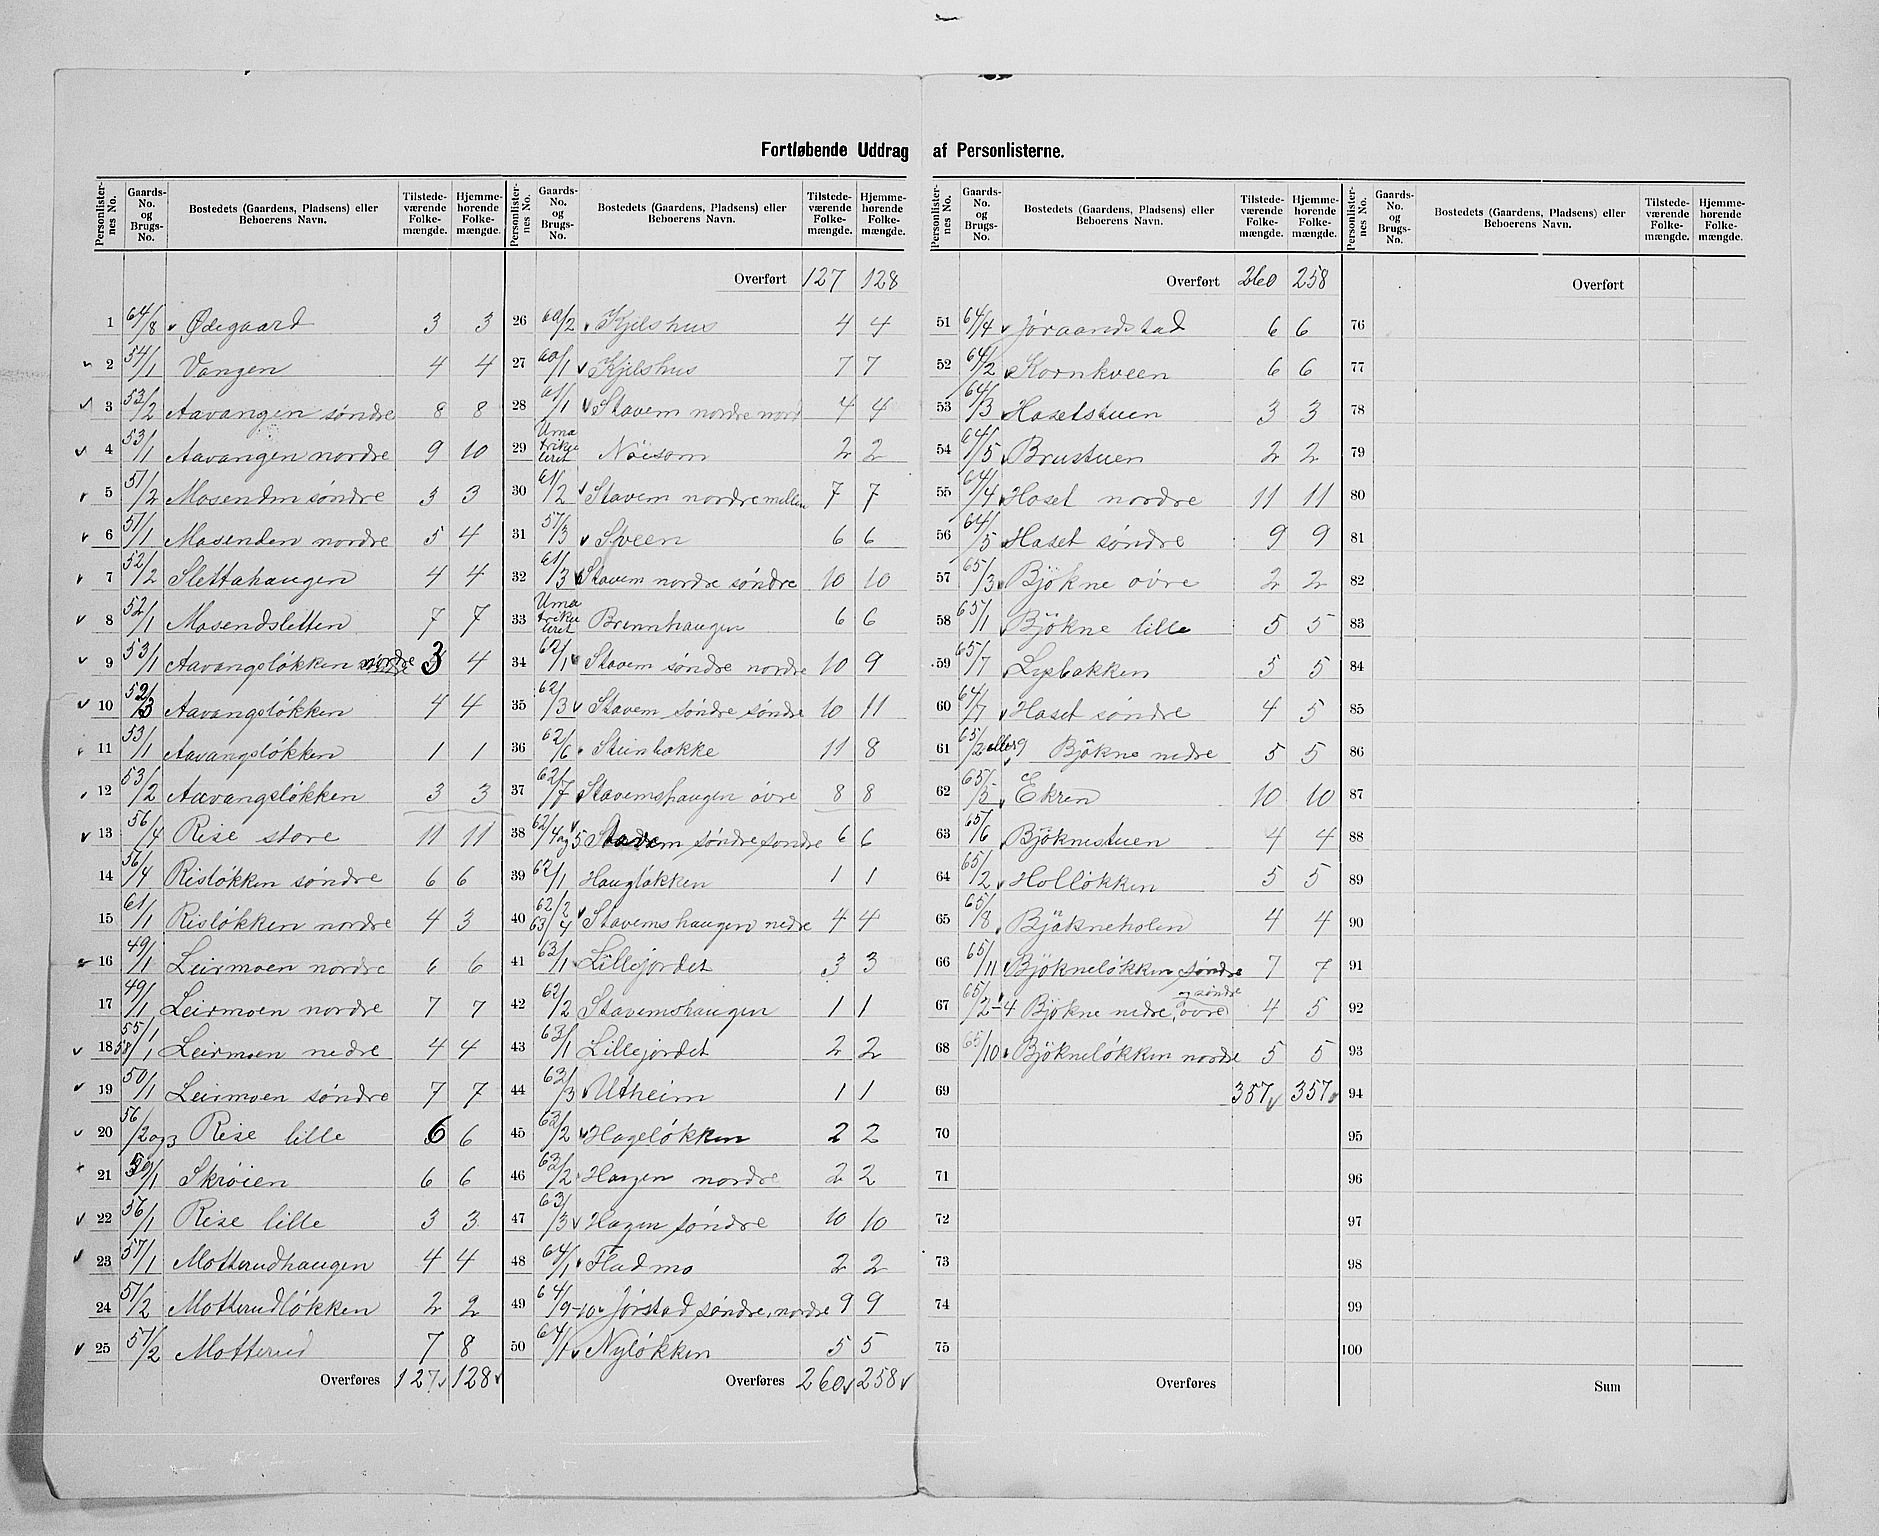 Fortløbende Uddrag af Personlisterne.
Personlisternes No. | Gaards-No. og Brugs-No. | Bostedets (Gaardens, Pladsens) eller Beboerens Navn. | Tilstedeværende Folkemængde. | Hjemmehørende Folkemængde.
1 64/8 Ødegaard 3 3
2 54/1 Vangen 4 4
3 53/2 Aavangen søndre 8 8
4 53/1 Aavangen nordre 9 10
5 51/2 Mosenden søndre 3 3
6 51/1 Mosenden nordre 5 4
7 52/2 Slettahaugen 4 4
8 52/1 Mosendsletten 7 7
9 53/1 Aavangsløkken nordre 3 4
10 52/3 Aavangsløkken 4 4
11 53/1 Aavangsløkken 1 1
12 53/2 Aavangsløkken 3 3
13 56/4 Rise store 11 11
14 56/4 Risløkken søndre 6 6
15 61/1 Risløkken nordre 4 3
16 49/1 Leirmoen nordre 6 6
17 49/1 Leirmoen nordre 7 7
18 55/1 58/1 Leirmoen nedre 4 4
19 50/1 Leirmoen søndre 7 7
20 56/2 og 3 Rise lille 6 6
21 59/1 Skrøien 6 6
22 56/1 Rise lille 3 3
23 57/1 Motterudhaugen 4 4
24 57/2 Motterudløkken 2 2
25 57/2 Motterud 7 8
Overføres 127 128
Personlisternes No. | Gaards-No. og Brugs-No. | Bostedets (Gaardens, Pladsens) eller Beboerens Navn. | Tilstedeværende Folkemængde. | Hjemmehørende Folkemængde.
Overført 127 128
26 60/2 Kjelshus 4 4
27 60/1 Kjelshus 7 7
28 61/1 Stavem nordre nord 4 4
29 Umatrikuleret Nöisom 2 2
30 61/2 Stavem nordre mellem 7 7
31 57/3 Sveen 6 6
32 61/3 Stavem nordre søndre 10 10
33 Umatrikuleret Brennhaugen 6 6
34 62/1 Stavem søndre nordre 10 9
35 62/3 Stavem søndre søndre 10 11
36 62/6 Steinbakke 11 8
37 62/7 Stavemshaugen øvre 8 8
38 62/4 og 5 Stavem søndre søndre 6 6
39 62/1 Haugløkken 1 1
40 62/2 63/4 Stavemshaugen nedre 4 4
41 63/1 Lillejordet 3 3
42 62/2 Stavemshaugen 1 1
43 63/1 Lillejordet 2 2
44 62/3 Utheim 1 1
45 63/2 Hageløkken 2 2
46 63/2 Hagen nordre 2 2
47 63/3 Hagen søndre 10 10
48 64/1 Fladmo 2 2
49 64/9-10 Jørstad søndre, nordre 9 9
50 64/1 Nyløkken 5 5
Overføres 260 258
Personlisternes No. | Gaards-No. og Brugs-No. | Bostedets (Gaardens, Pladsens) eller Beboerens Navn. | Tilstedeværende Folkemængde. | Hjemmehørende Folkemængde.
Overført 260 258
51 64/4 Jøraandstad 6 6
52 64/2 Kornkveen 6 6
53 64/3 Hasetstuen 3 3
54 64/5 Brustuen 2 2
55 64/4 Haset nordre 11 11
56 64/5 Haset søndre 9 9
57 65/3 Bjökne øvre 2 2
58 65/1 Bjökne lille 5 5
59 65/7 Lysbakken 5 5
60 64/7 Haset søndre 4 5
61 65/2 eller 9 Bjökne nedre 5 5
62 65/5 Ekren 10 10
63 65/6 Bjöknestuen 4 4
64 65/2 Holløkken 5 5
65 65/8 Bjökneholen 4 4
66 65/11 Bjökneløkken søndre 7 7
67 65/2-4 Bjökne nedre, øvre og søndre 4 5
68 65/10 Bjökneløkken nordre 5 5
69 357 357
70
71
72
73
74
75
Overføres
Personlisternes No. | Gaards-No. og Brugs-No. | Bostedets (Gaardens, Pladsens) eller Beboerens Navn. | Tilstedeværende Folkemængde. | Hjemmehørende Folkemængde.
Overført
76
77
78
79
80
81
82
83
84
85
86
87
88
89
90
91
92
93
94
95
96
97
98
99
100
Sum